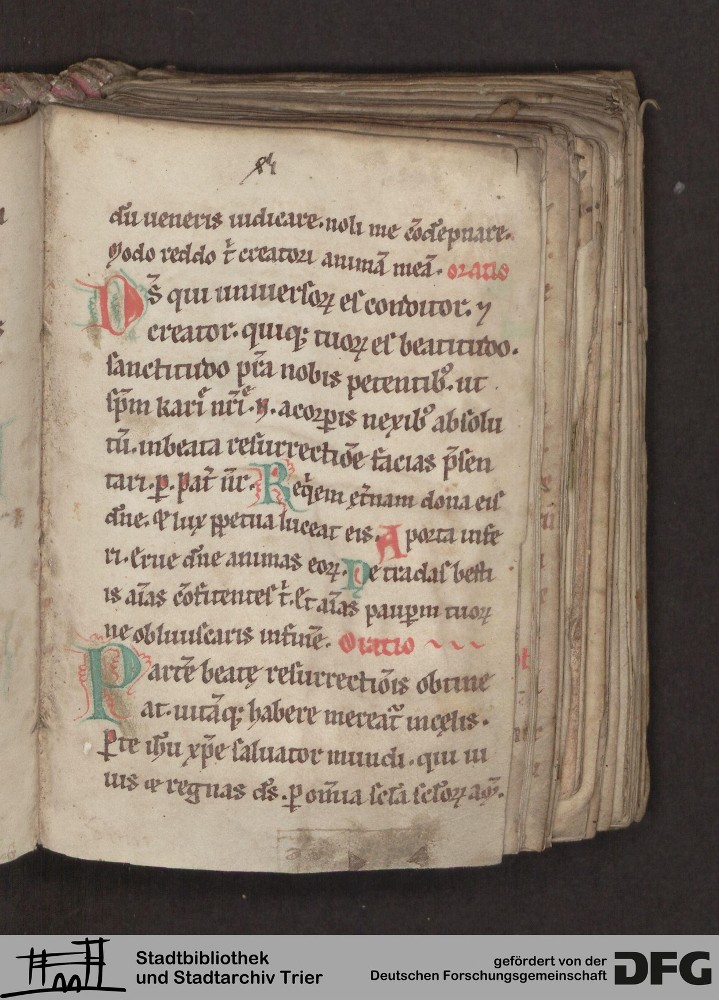 dū ueneris iudicare. noli me cōdēpnare.
Modo reddo t̄ creatori animā meā. oratio
Ds̄ qui uniuersoꝝ es conditor. ⁊
creator. quiq; tuoꝝ es beatitudo.
sanctitudo pr̄a nobis petentib⁹. ut
sp̄m kari nr̄i .N. a corꝑis nexib⁹ absolu
tū. in beata resurrectiōe facias p̄sen
tari. p̱. pat̄ nr̄. Reqͥem et̄nam dona eis
dn̄e. Et lux ꝑpetua luceat eis. A porta infe
ri. Erue dn̄e animas eoꝝ. Ne tradas besti
is aīas cōfitentes t̄. Et aīas pauꝑum tuoꝝ
ne obliuiscaris in finē. Oratio
Partē beatę resurrectiōis obtine
at. uitāq; habere mereat᷑ in cęlis.
P̱ te ih̄u xp̄e saluator mundi. qui ui
uis et regnas ds̄. ꝑ om̄ia scl̄a scl̄oꝝ am̄.
Stadtbibliothek
und Stadtarchiv Trier
gefördert von der
Deutschen Forschungsgemeinschaft
DFG